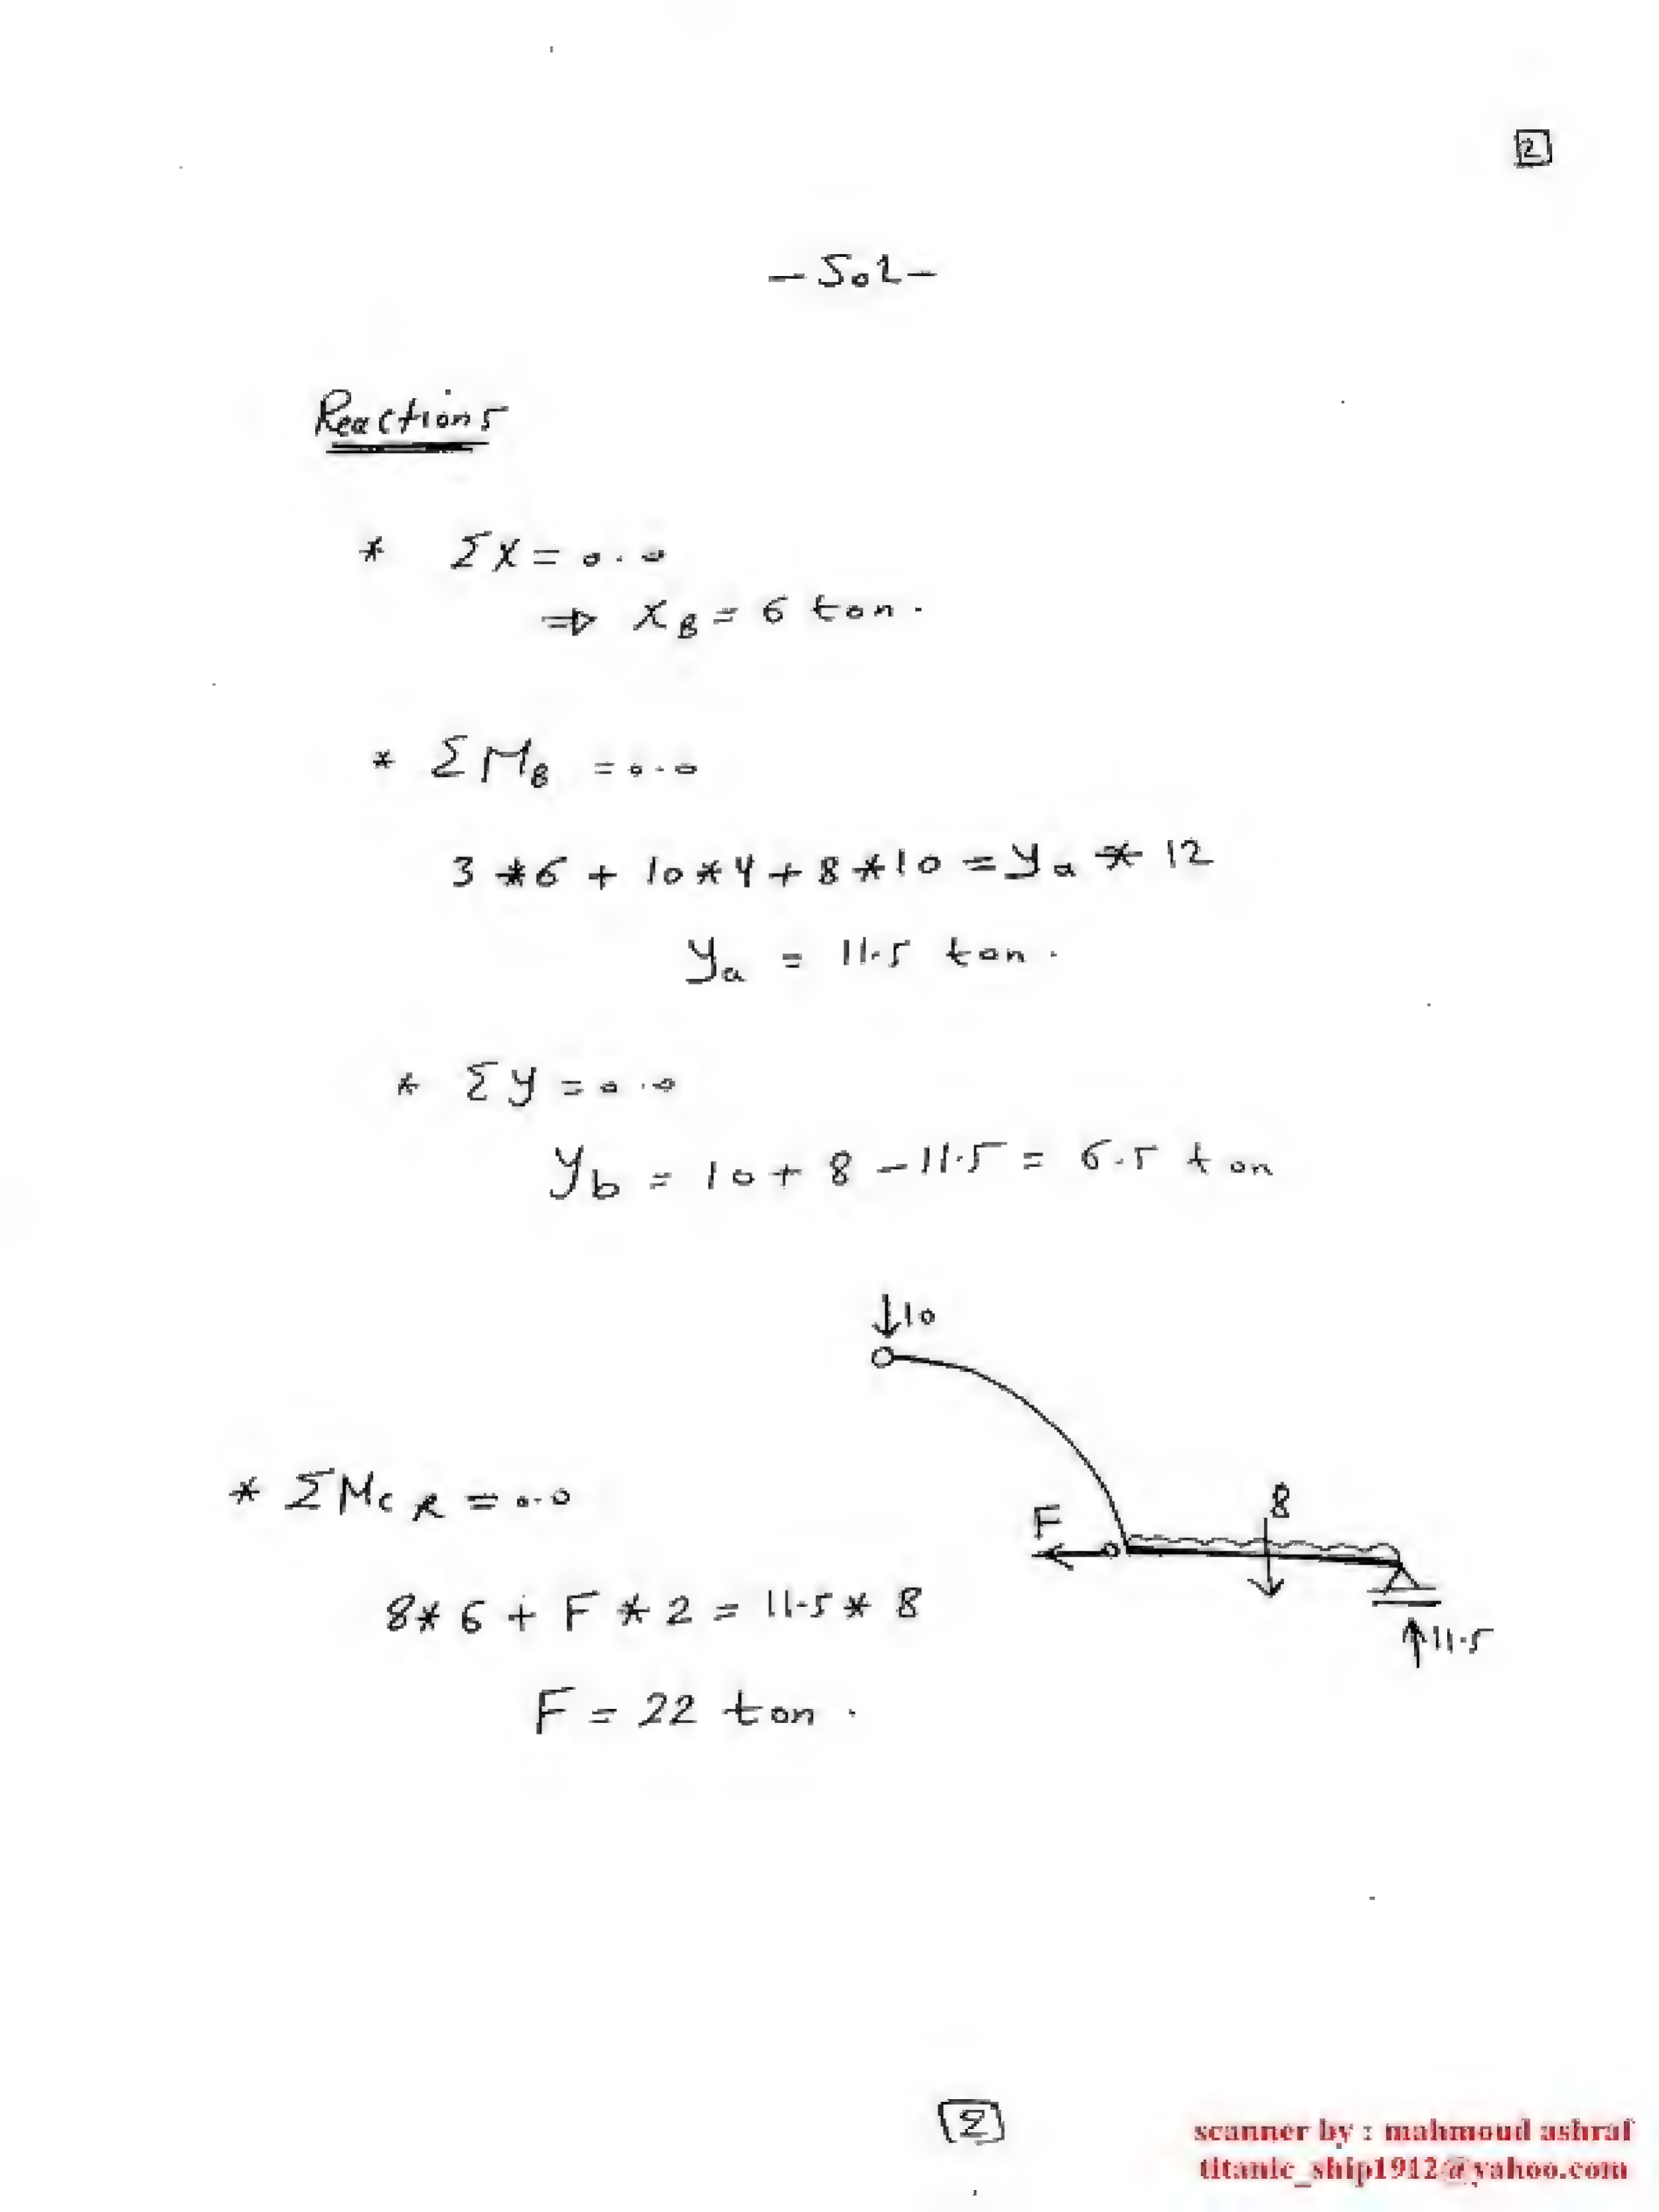 2
- Sol -
Reactions
* ΣX = 0.0
⇒ XB = 6 ton.
* ΣMB = 0.0
3 * 6 + 10 * 4 + 8 * 10 = ya * 12
ya = 11.5 ton.
* Σy = 0.0
yb = 10 + 8 - 11.5 = 6.5 ton
↓10
* ΣMC R = 0.0
F
8
8 * 6 + F * 2 = 11.5 * 8
↑11.5
F = 22 ton.
2
scanner by : mahmoud ashraf
titanic_ship1912@yahoo.com